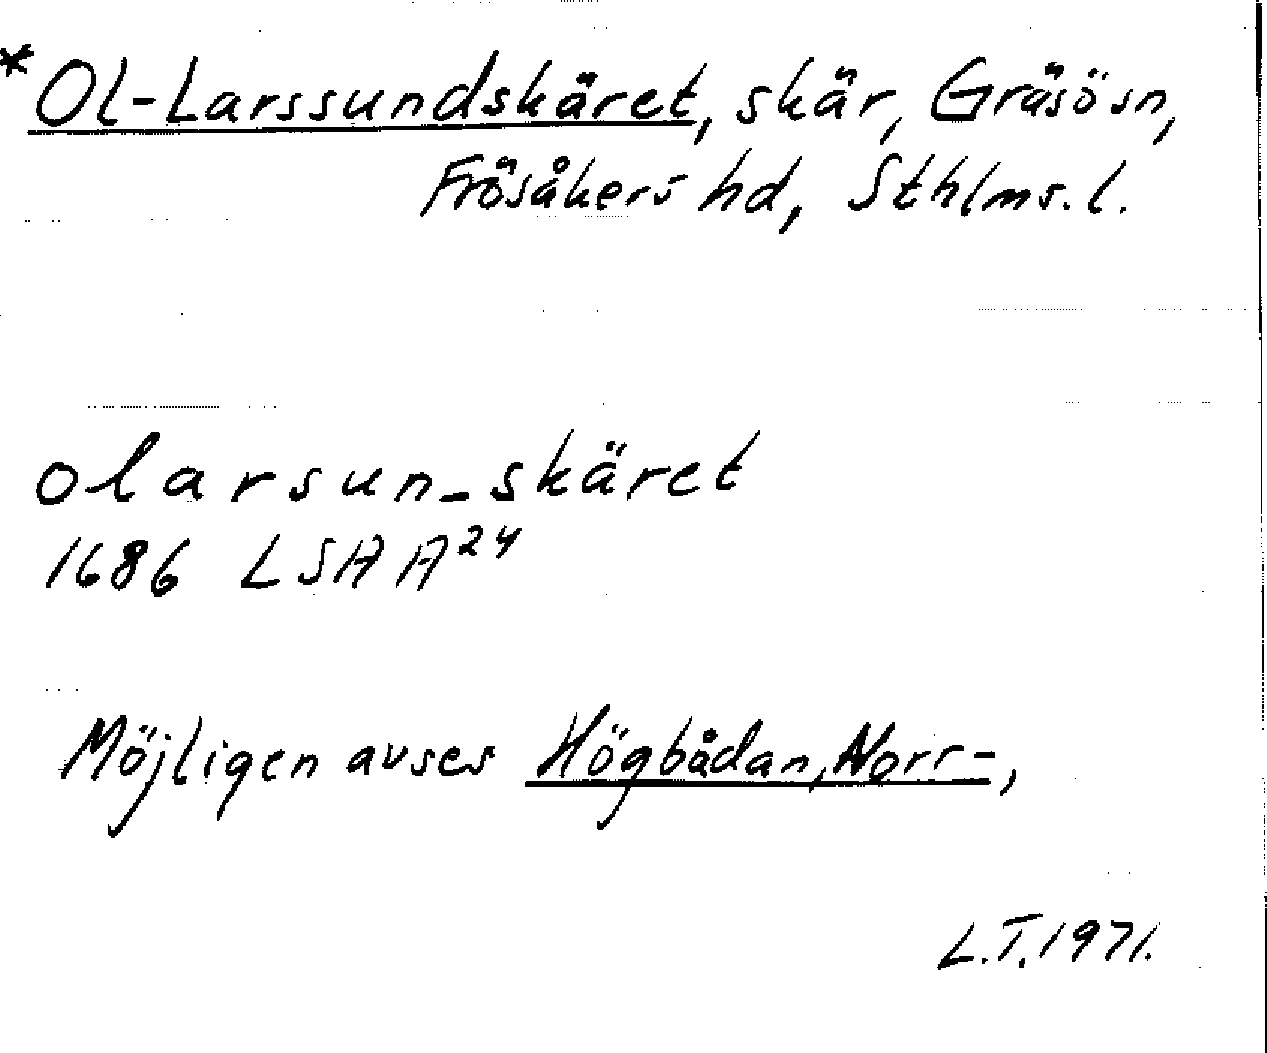 *Ol-Larssundskäret, skär, Gräsö sn,
Frösåkers hd, Sthlms. l.
olarsun_skäret
1686 LSA A²⁴
Möjligen avses Högbådan, Norr-,
L.T. 1971.